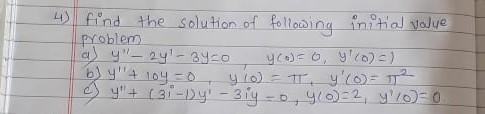 4) find the solution of following initial value
problem
a) y"- 2y'- 3y=0 y(0)= 0, y'(0)=1
b) y"+ 10y =0 , y(0) = π, y'(0)= π²
c) y"+ (3i-1)y' - 3iy =0, y(0)=2, y'(0)=0